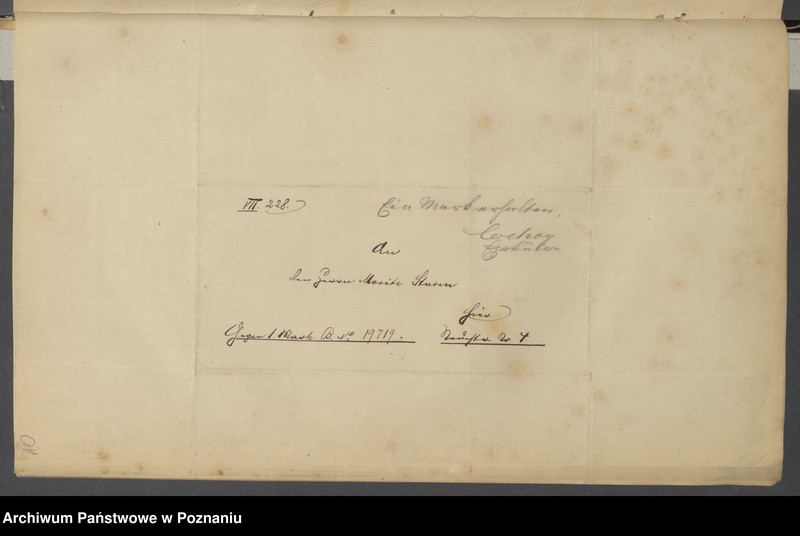 VII. 228.
Ein Mark erhalten.
An
den Herrn Moritz Sturm
hier
Gegen 1 Mark B. No 19719.
10
Archiwum Państwowe w Poznaniu